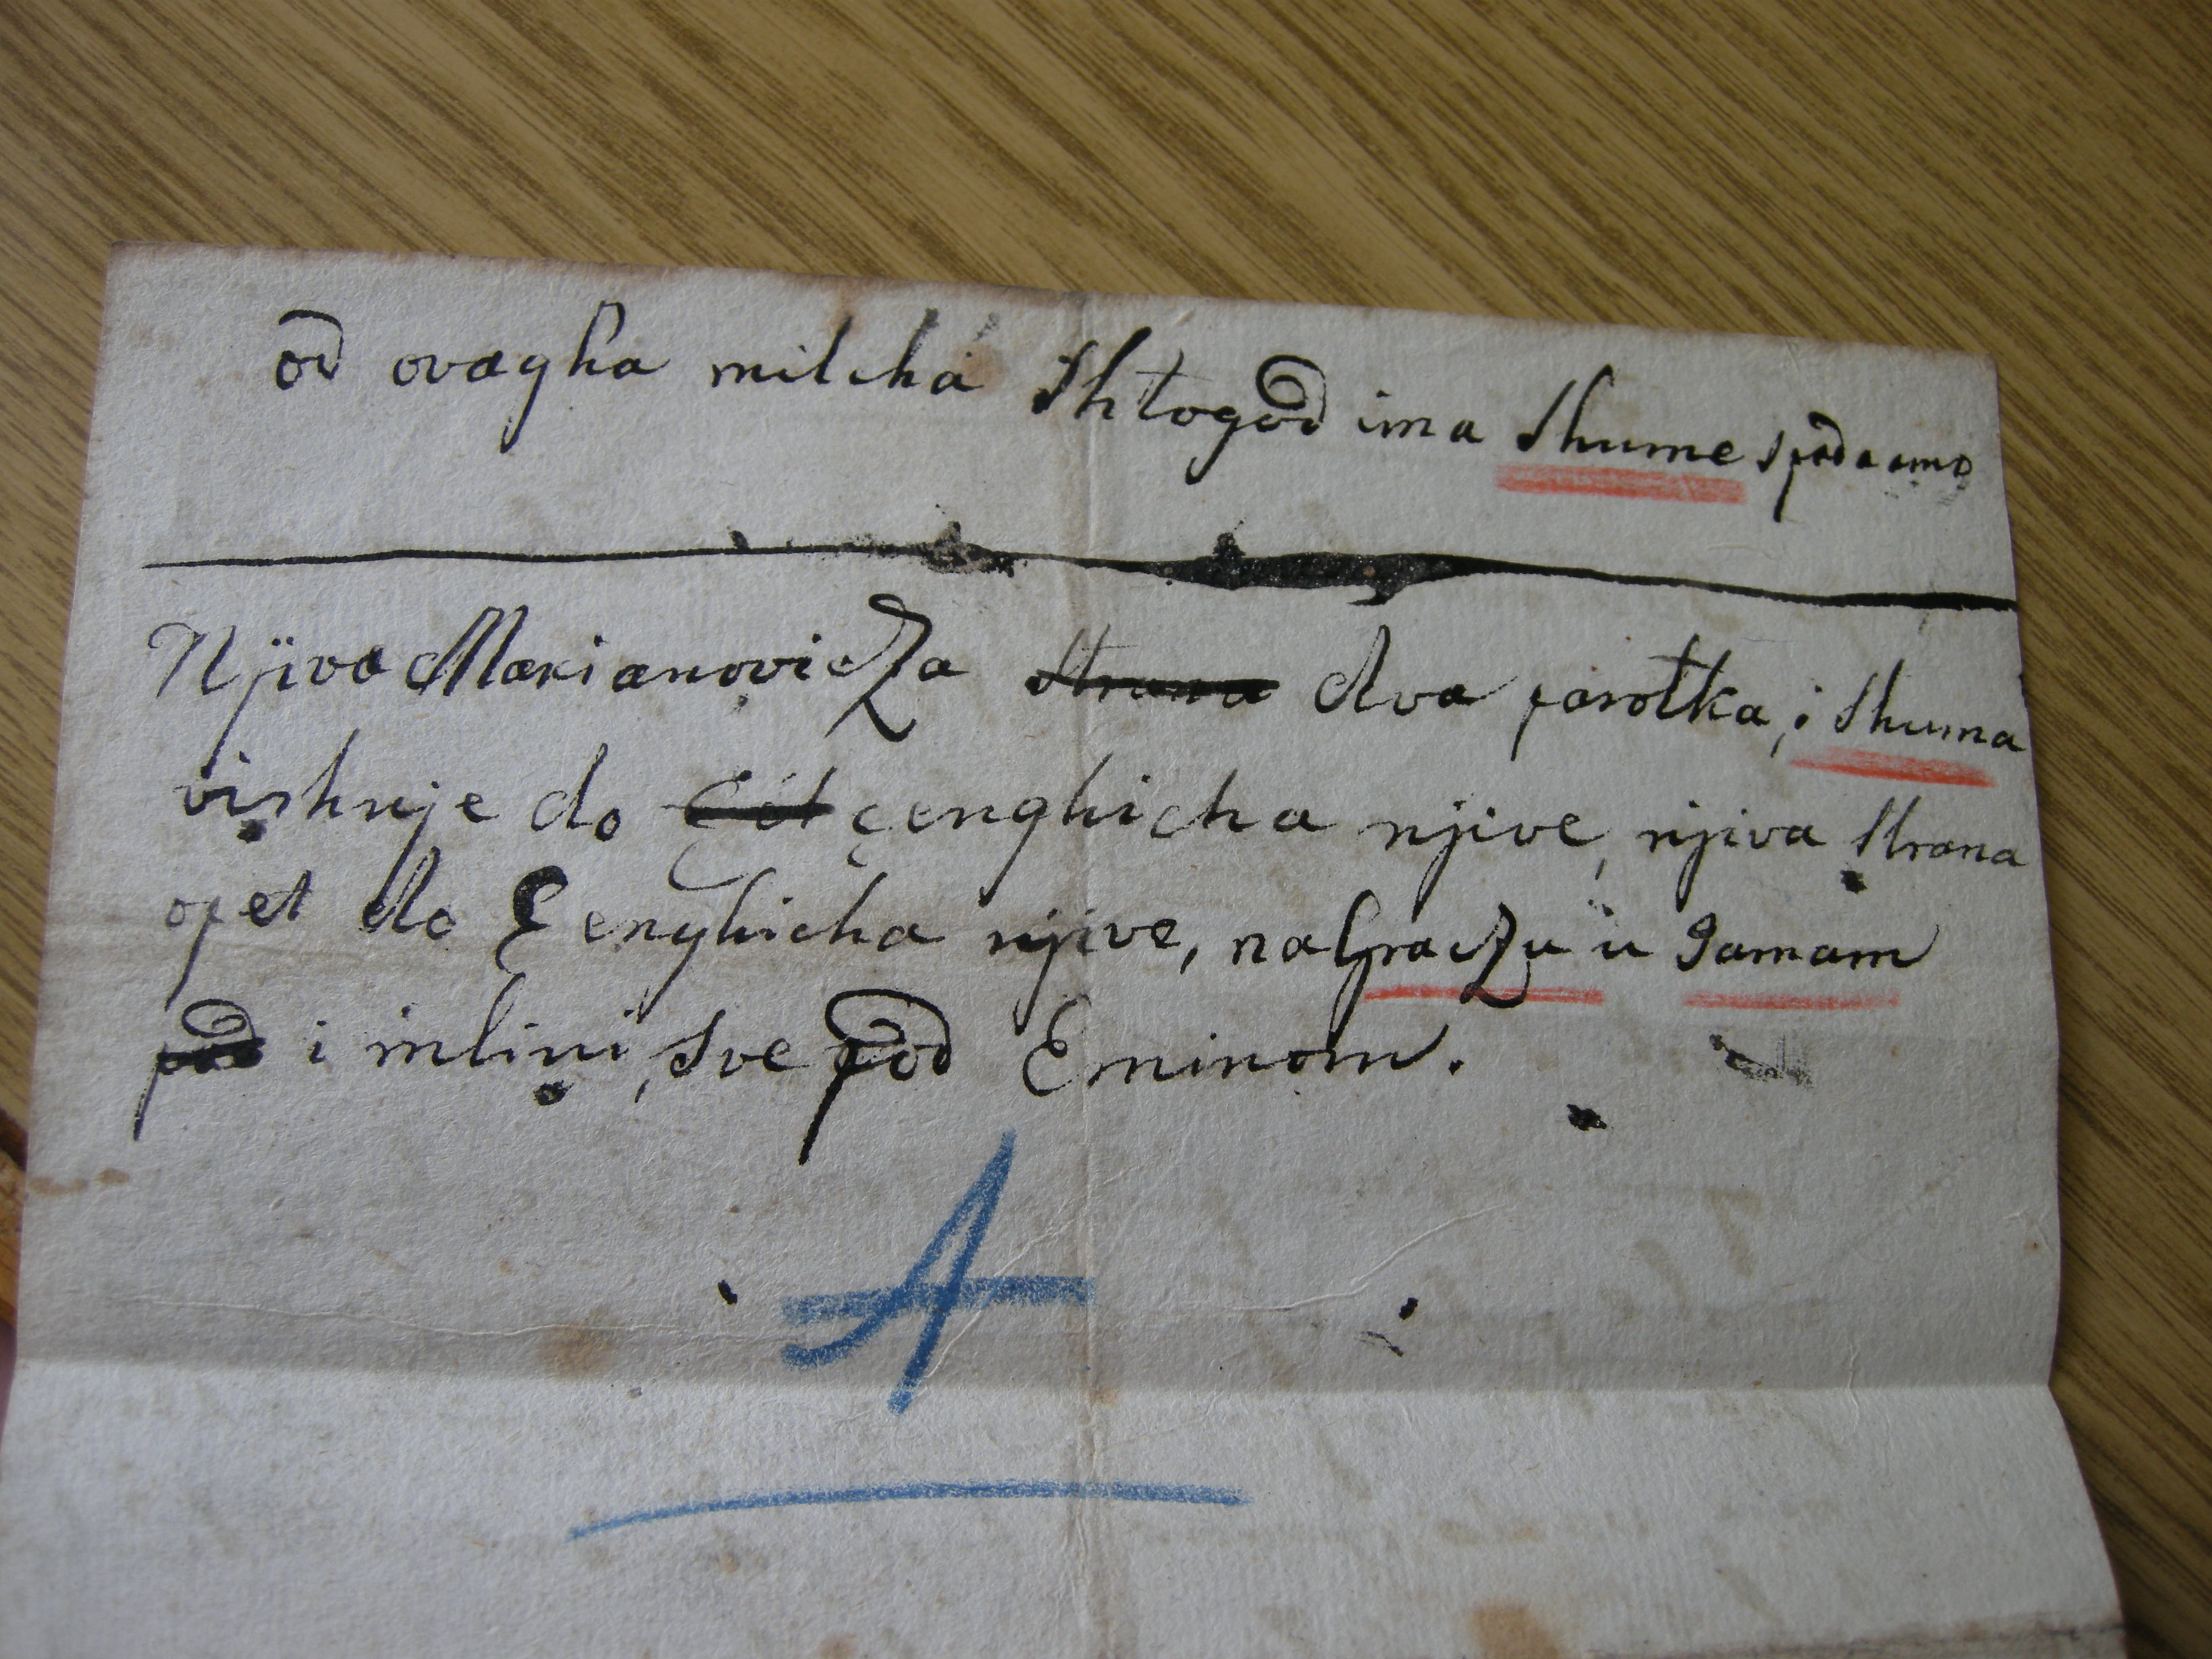 od ovagha milcha Shtogod ima Shume spada amo
Njiva MarianovicZa Strana dva parotka, i Shuma
vishnje do çenghicha njive, njiva Strana
opet do Çenghicha njive, na GracZu u Jamam
pod i mlini, Sve pod Eminom.
A